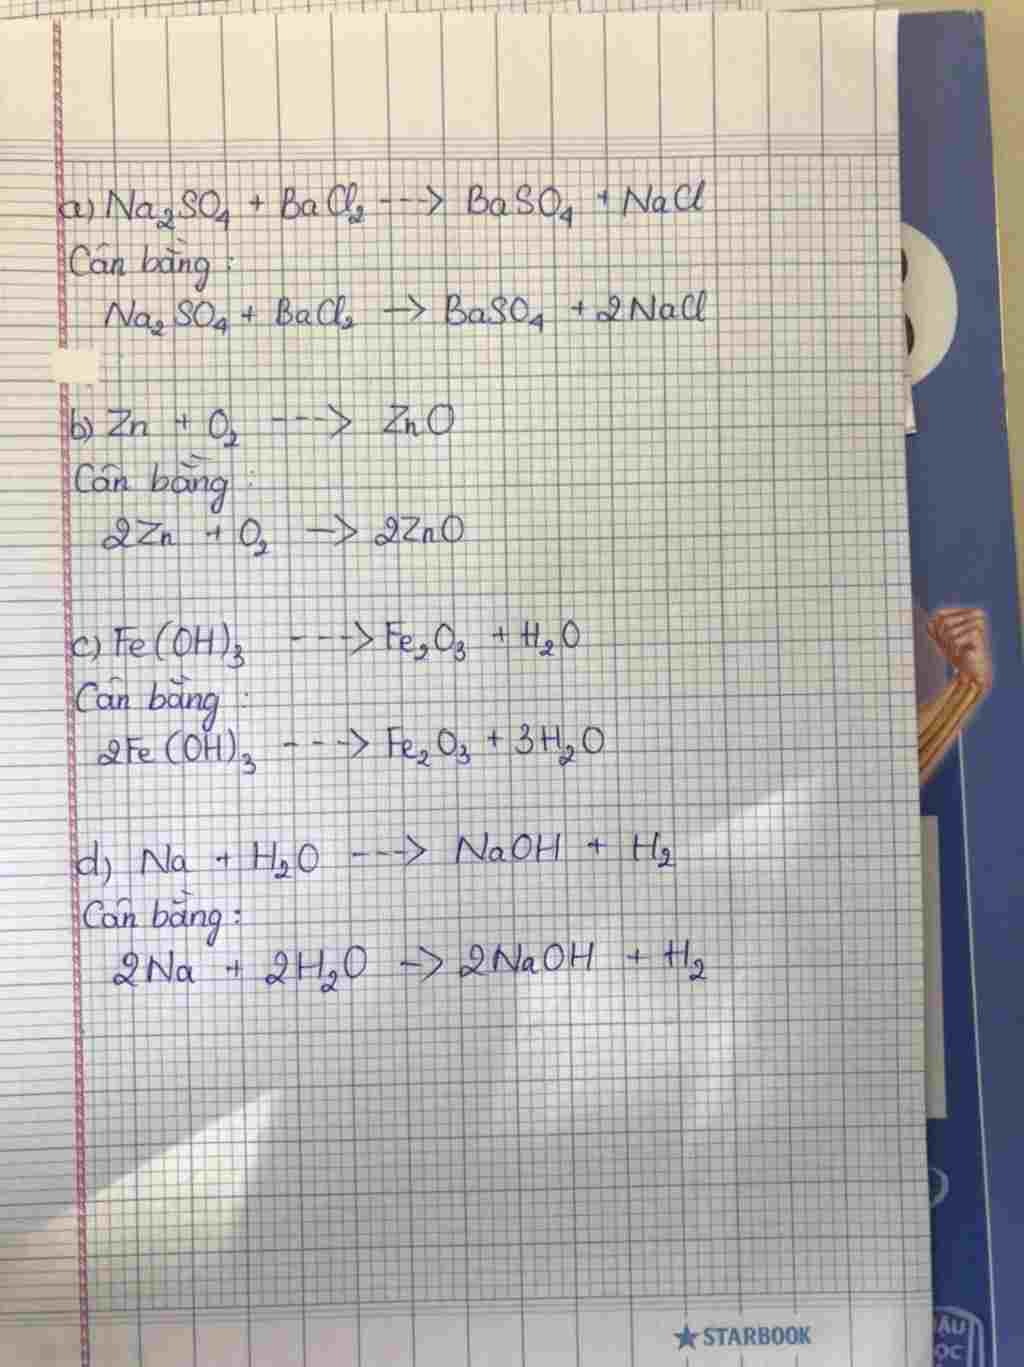 a) Na₂SO₄ + BaCl₂ ---> BaSO₄ + NaCl
Cân bằng :
Na₂SO₄ + BaCl₂ -> BaSO₄ + 2NaCl
b) Zn + O₂ ---> ZnO
Cân bằng :
2Zn + O₂ -> 2ZnO
c) Fe(OH)₃ ---> Fe₂O₃ + H₂O
Cân bằng :
2Fe(OH)₃ ---> Fe₂O₃ + 3H₂O
d) Na + H₂O ---> NaOH + H₂
Cân bằng :
2Na + 2H₂O -> 2NaOH + H₂
STARBOOK